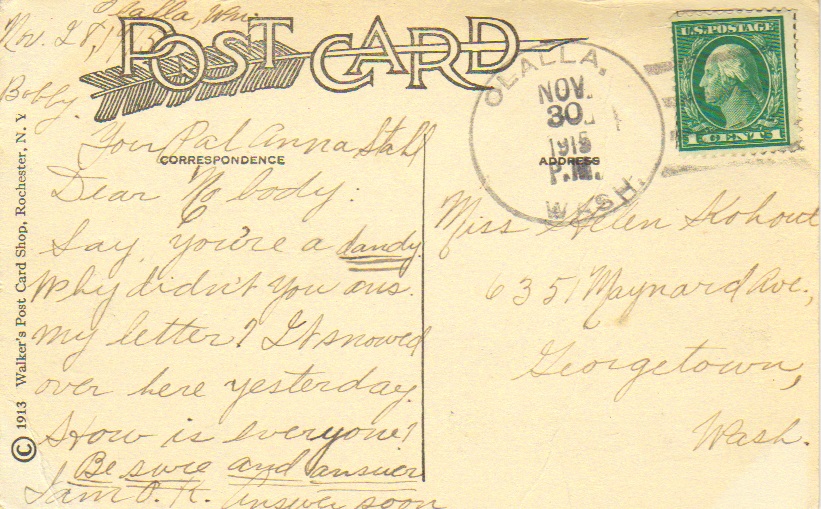 Olalla, Wn.
Nv. 28, 1915
POST CARD
Bobby.
Your Pal Anna Stahl
CORRESPONDENCE
Dear No body:
Say, you're a dandy
Why didn't you ans.
my letter? It snowed
over here yesterday.
How is everyone?
Be sure and answer
I am O. K. Answer soon
© 1913 Walker's Post Card Shop, Rochester, N. Y
OLALLA,
NOV.
30
1915
P.M.
WASH.
U.S. POSTAGE
1 CENT 1
ADDRESS
Miss Helen Kohout
6351 Maynard Ave.,
Georgetown,
Wash.